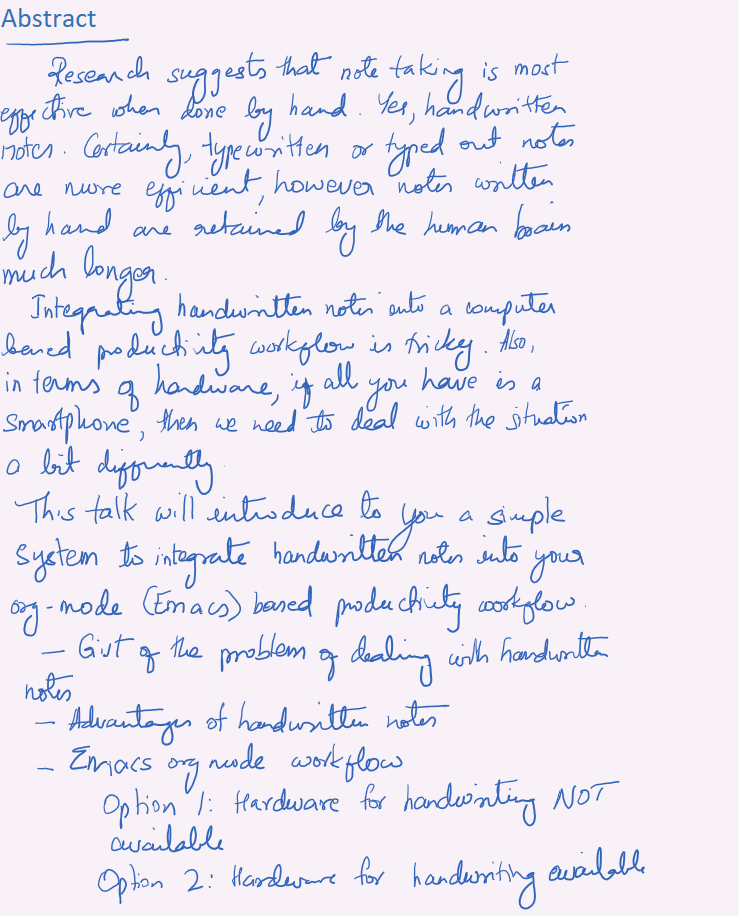 Abstract
Research suggests that note taking is most
effective when done by hand. Yes, handwritten
notes. Certainly, typewritten or typed out notes
are more efficient, however notes written
by hand are retained by the human brain
much longer.
Integrating handwritten notes into a computer
based productivity workflow is tricky. Also,
in terms of hardware, if all you have is a
smartphone, then we need to deal with the situation
a bit differently.
This talk will introduce to you a simple
system to integrate handwritten notes into your
org-mode (Emacs) based productivity workflow.
- Gist of the problem of dealing with handwritten
notes
- Advantages of handwritten notes
- Emacs org mode workflow
Option 1: Hardware for handwriting NOT
available
Option 2: Hardware for handwriting available